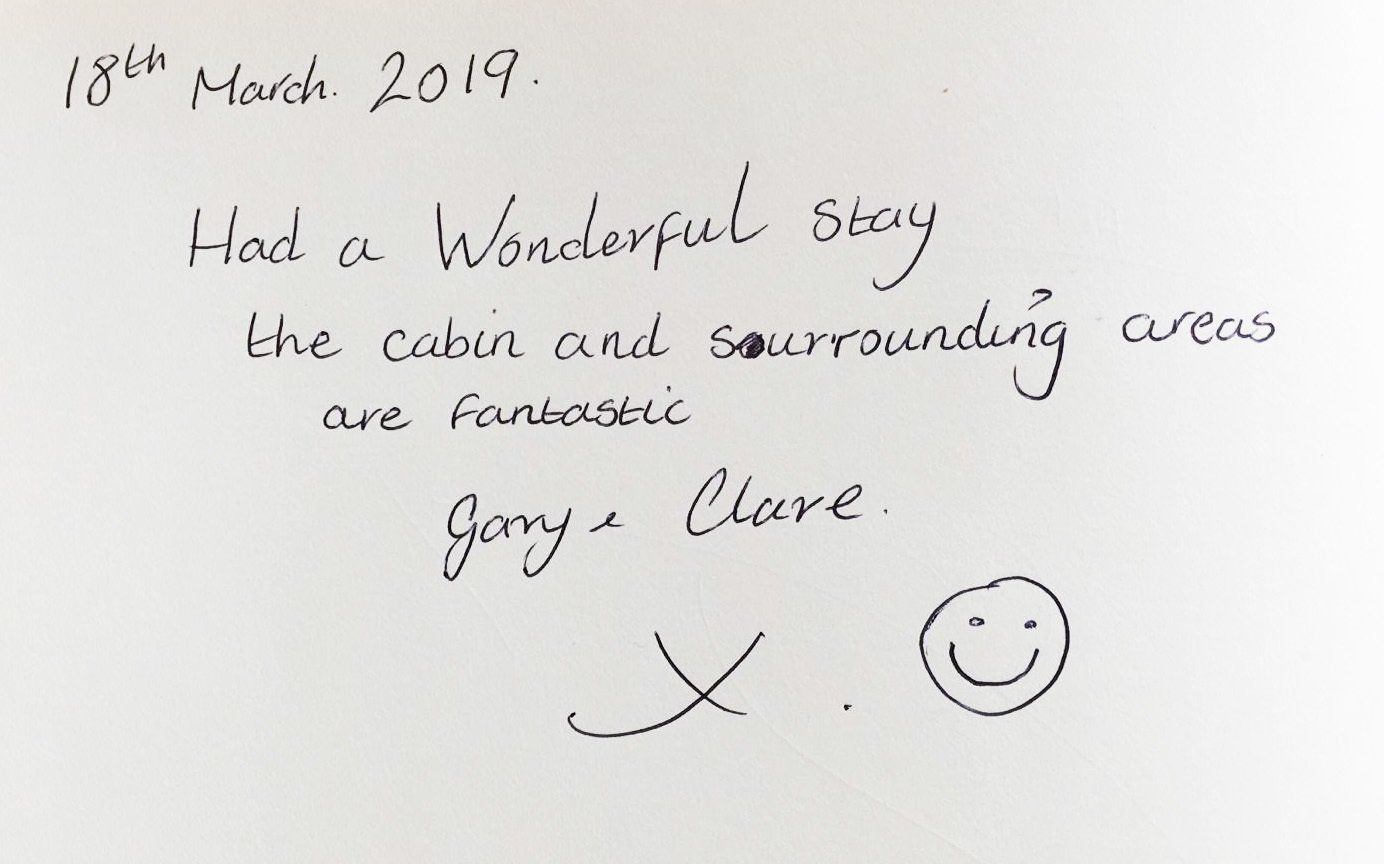 18th March. 2019.
Had a Wonderful stay
the cabin and surrounding areas
are fantastic
Gary & Clare.
X.